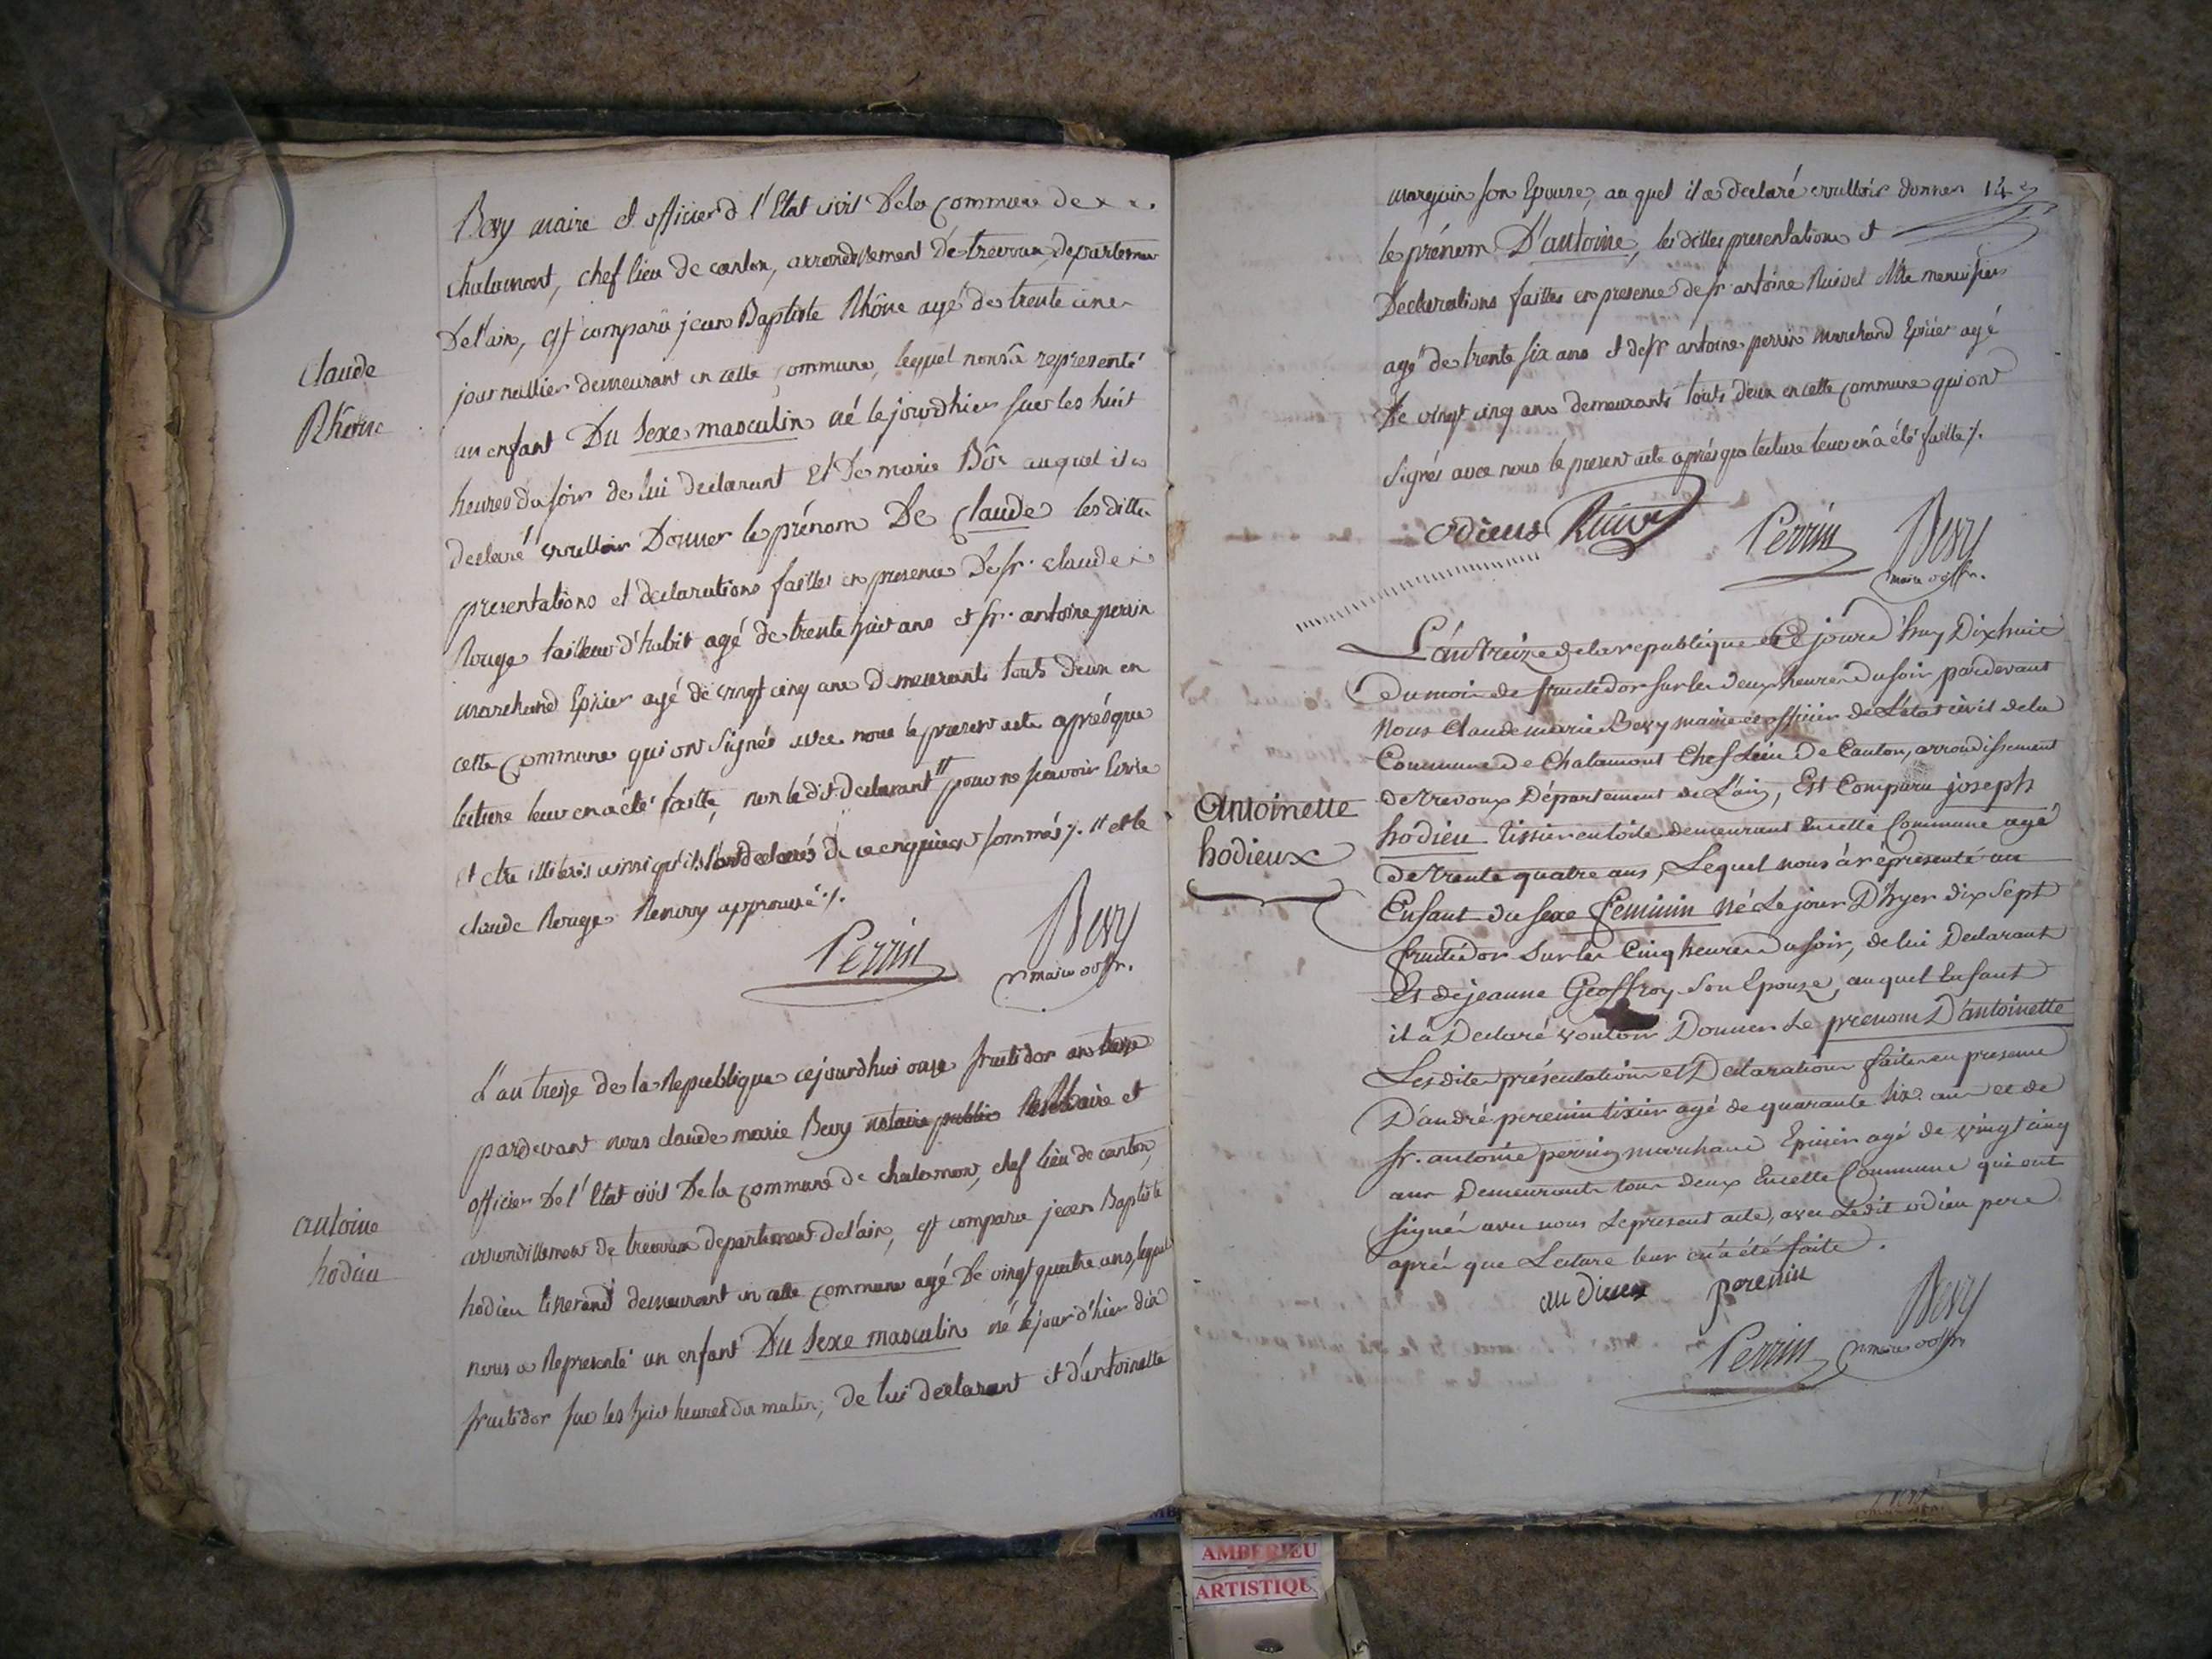 Bevy maire et officier d l'Etat civil De la Commune de
Chalamont, chef lieu de canton, arrondissement De trevoux, departement
De l'ain, est comparu jean Baptiste Rhône agé de trente
journallier demeurant en cette commune, lequel nous à representé
Claude
Rhône
un enfant Du Sexe masculin né le jourdhier sur les huit
heures du soir de lui declarant Et De marie auquel il a
declaré voulloir Donner le prénom De Claude les dittes
presentations et declarations faittes en presence De Sr. Claude
Rouge tailleur d'habit agé de trente huit ans et Sr. antoine perrin
marchand Epicier agé de vingt cinq ans Demeurants touts Deux en
cette Commune qui ont Signés avec nous le present acte aprés que
lecture leur en a été faitte, non le dit declarant pour ne scavoir Ecrire
et etre illiterés ainsi qu'ils l'ont declarés de ce enquis et sommés ./. et le
Claude Rouge Renvoy approuvé ./.
Perrin Bevy
maire off.er
L'an treize de la Republique cejourdhui onze fructidor an treize
pardevant nous claude marie Bevy notaire public maire et
officier De l'Etat civil De la commune de chalamont, chef lieu de canton,
arrondissement de trevoux departement de l'ain, est comparu jean Baptiste
antoine
hodieu
hodieu tisserand demeurant en cette commune agé De vingt quatre ans, lequel
nous a Representé un enfant Du Sexe masculin né le jour d'hier dix
fructidor sur les huit heures du matin, de lui declarant et d'antoinette
14
son Epouse, au quel il a declaré voulloir donner
le prénom D'antoine, les dittes presentations et
Declarations faittes en presence de Sr antoine menuisier
agé de trente six ans et de Sr antoine perrin Marchand Epicier agé
De vingt cinq ans demeurants touts deux en cette commune qui ont
Signés avec nous le present acte aprés que lecture leur en à été faitte ./.
odieus Perrin Bevy
maire off.er
L'an Treize de la republique et Ce jourd'huy Dix huit
Du mois de fructidor sur les deux heures Du soir pardevant
Nous Claude marie Bevy maire et officier de L'etat civil de la
Commune De Chalamont Chef Lieu De Canton, arrondissement
de trevoux Département de L'ain, Est Comparu joseph
Antoinette
hodieux
hodieu tissier en toile demeurant En cette Commune agé
de trente quatre ans, Lequel nous à réprésenté un
Enfant du sexe feminin Né Le jour D'hyer dix Sept
fructidor Sur les Cinq heures Du soir, de lui Declarant
Et de jeanne Geoffroy Son Epouze, auquel Enfant
il à Declaré vouloir Donner Le prenom D'antoinette
Les dites présentations et Declarations faites en presence
D'andré perenin tixier agé de quarante Six ans et de
Sr. antoine perrin marchand Epicier agé de vingt cinq
ans Demeurants tous deux En cette Commune qui ont
signés avec nous Le present acte, avec Le dit odieu pere
après que Lecture leur en à été faite.
au dieux perenin Bevy
Perrin maire off.er
AMBERIEU
ARTISTIQU